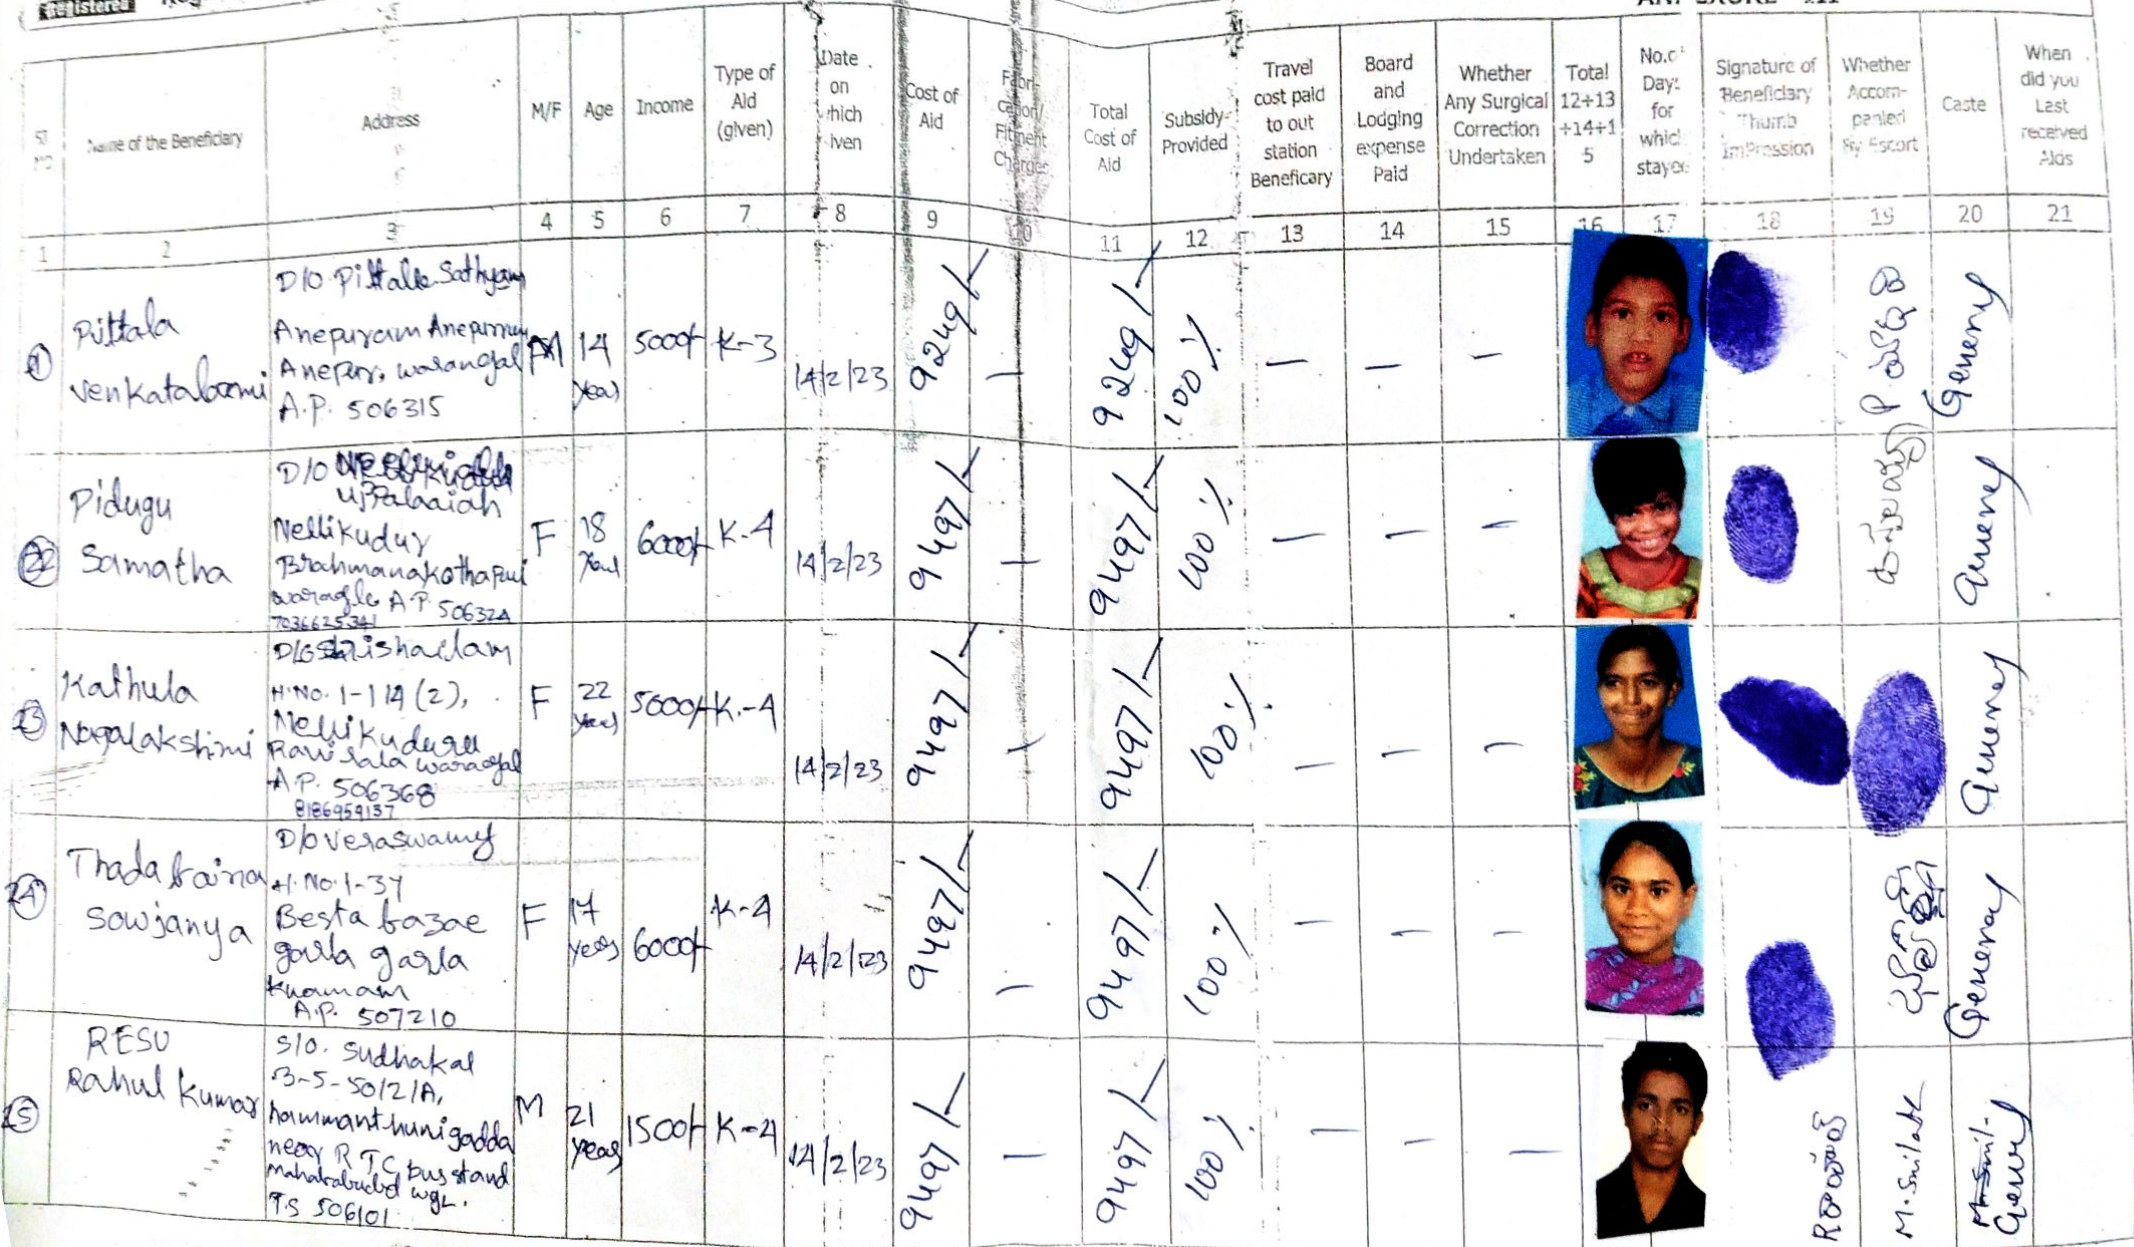 Registered
ANNEXURE - III
Name of the Beneficiary
Address
M/F
Age
Income
Type of
Aid
(given)
Date
on
which
given
Cost of
Aid
Fabri-
cation/
Fitment
Charges
Total
Cost of
Aid
Subsidy
Provided
Travel
cost paid
to out
station
Beneficary
Board
and
Lodging
expense
Paid
Whether
Any Surgical
Correction
Undertaken
Total
12+13
+14+1
5
No.of
Days
for
which
stayed
Signature of
Beneficiary
Thumb
ImPression
Whether
Accom-
panied
By Escort
Caste
When
did you
Last
received
Aids
1
2
3
4
5
6
7
8
9
10
11
12
13
14
15
16
17
18
19
20
21
Pittala
Venkatalaxmi
D/O Pittale Sathyam
Anepuram
Warangal
A.P. 506315
M
14
year
5000/-
K-3
14/2/23
9249/-
9249/-
100%
General
22
Pidugu
Samatha
D/O
Uppalaaiah
Nellikudur
Brahmanakothapui
A.P. 506324
7036625341
F
18
6000/-
K-4
14/2/23
9497/-
9497/-
100%
General
23
Kathula
Nagalakshmi
D/O Srishailam
H.No. 1-114 (2),
Nellikuduru
Ravirala
A.P. 506368
8186959137
F
22
years
5000/-
K-4
14/2/23
9497/-
9497/-
100%
General
24
Thadaboina
Sowjanya
D/O Veraswamy
H.No. 1-37
Besta bazae
garla garla
Khamam
A.P. 507210
F
17
years
6000/-
K-4
14/2/23
9497/-
9497/-
100%
General
25
RESU
Rahul Kumar
S/O. Sudhakal
3-5-50/2/A,
hammanthunigadda
near RTC bus stand
Mahabubabad WGL.
T.S 506101
M
21
years
1500/-
K-4
14/2/23
9497/-
9497/-
100%
General